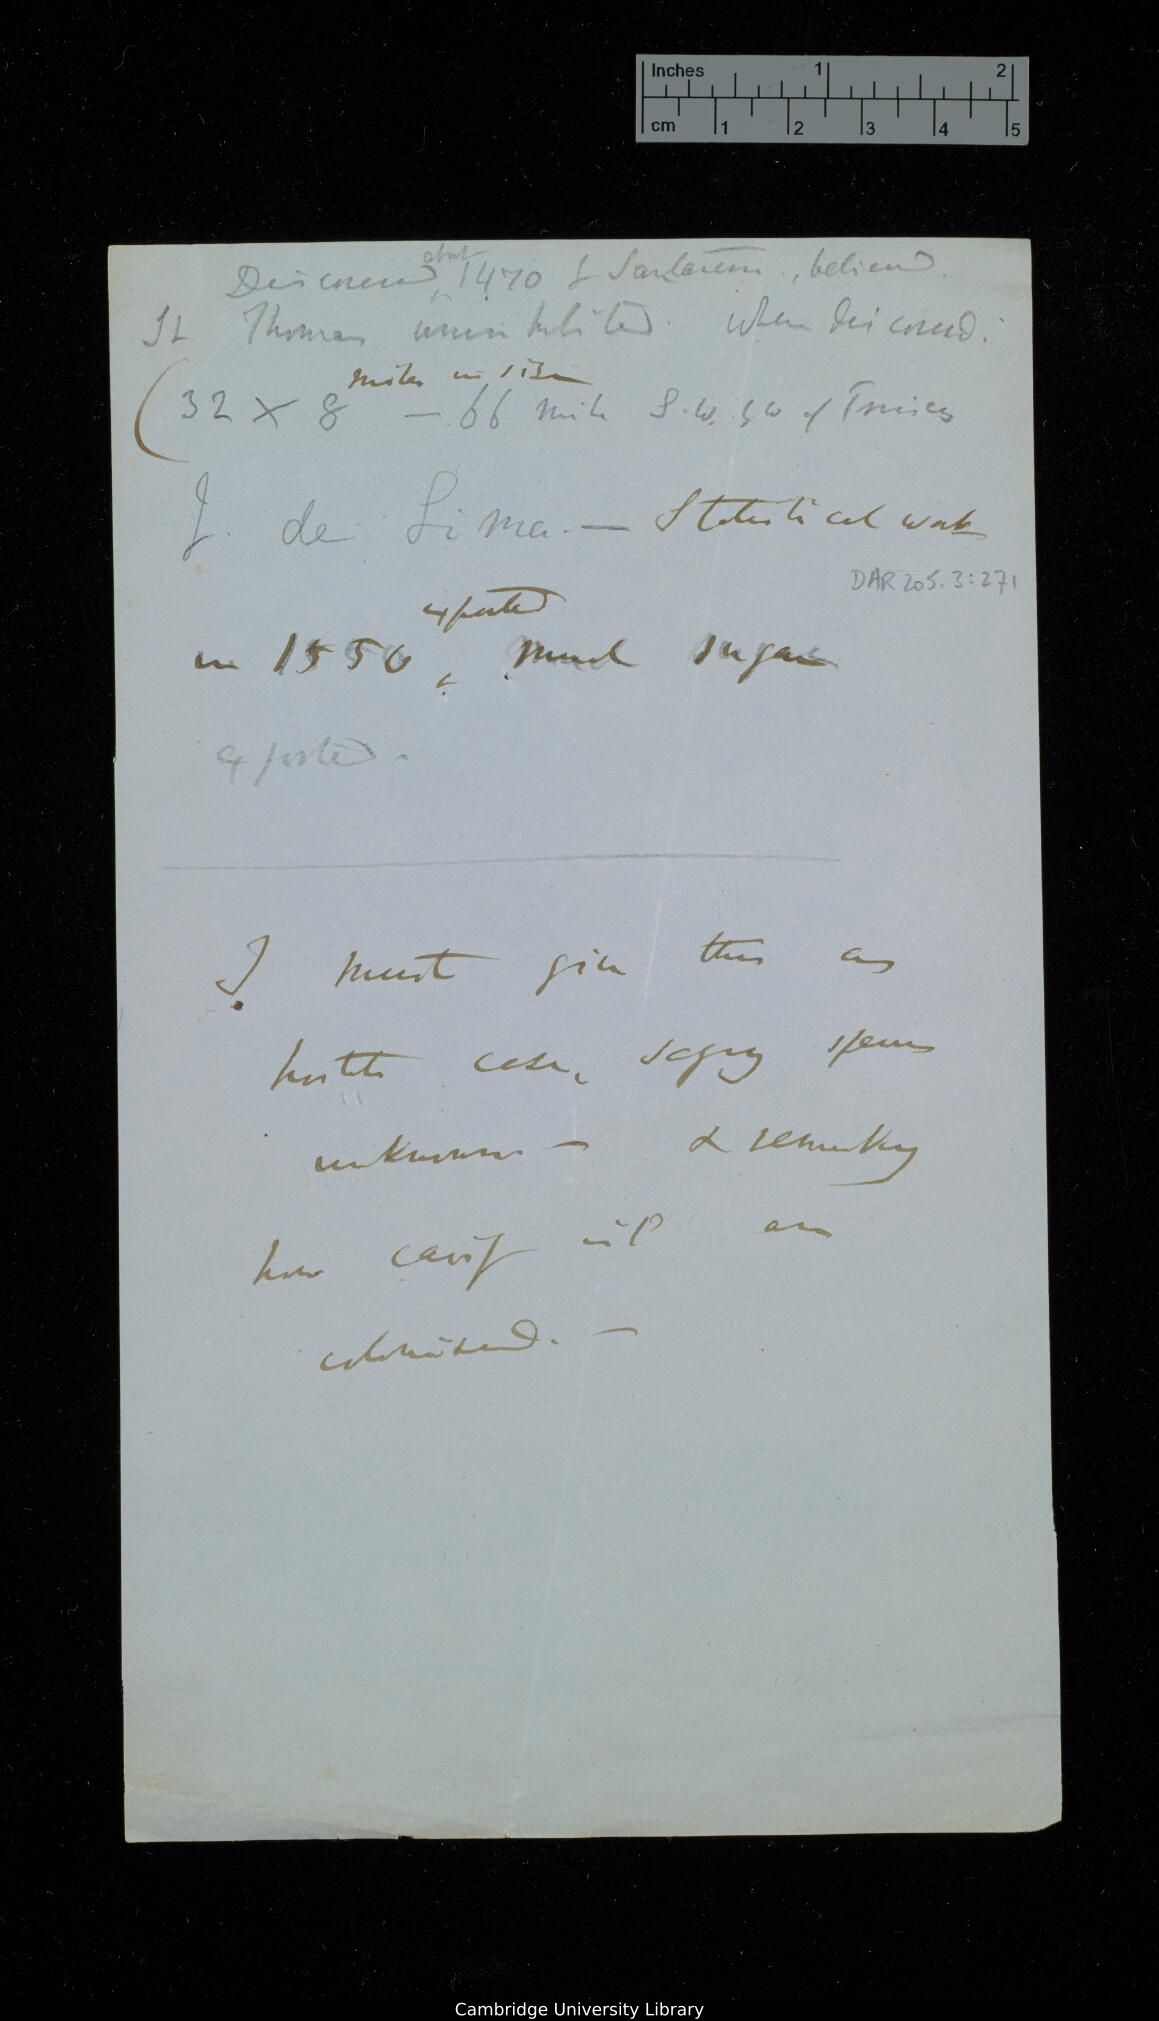 Inches 1 2
cm 1 2 3 4 5
about
Discovered 1470 by Santarem, believed
St Thomas uninhabited when discovered.
miles in size
(32 × 8 — 66 mile S.W. by W of
J. de Lima — Statistical work
DAR 205.3:271
exported
in 1550, much sugar
exported.
I must give this as
case, saying
unknown — & remarking
how easily isld are
colonised. —
Cambridge University Library